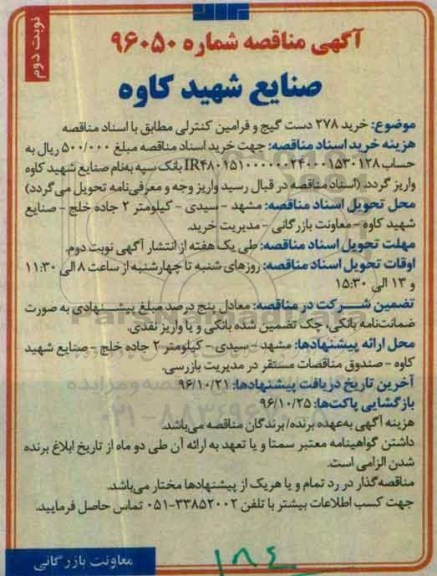 نوبت دوم
آگهی مناقصه شماره ۹۶۰۵۰
صنایع شهید کاوه
موضوع: خرید ۲۷۸ دست گیج و فرامین کنترلی مطابق با اسناد مناقصه
هزینه خرید اسناد مناقصه: جهت خرید اسناد مناقصه مبلغ ۵۰۰/۰۰۰ ریال به
حساب IR۴۸۰۱۵۱۰۰۰۰۰۰۲۴۰۰۰۱۵۳۰۱۲۸ بانک سپه به‌نام صنایع شهید کاوه
واریز گردد. (اسناد مناقصه در قبال رسید واریز وجه و معرفی‌نامه تحویل می‌گردد)
محل تحویل اسناد مناقصه: مشهد - سیدی - کیلومتر ۲ جاده خلج - صنایع
شهید کاوه - معاونت بازرگانی - مدیریت خرید.
مهلت تحویل اسناد مناقصه: طی یک هفته از انتشار آگهی نوبت دوم.
اوقات تحویل اسناد مناقصه: روزهای شنبه تا چهارشنبه از ساعت ۸ الی ۱۱:۳۰
و ۱۳ الی ۱۵:۳۰
تضمین شرکت در مناقصه: معادل پنج درصد مبلغ پیشنهادی به صورت
ضمانت‌نامه بانکی، چک تضمین شده بانکی و یا واریز نقدی.
محل ارائه پیشنهادها: مشهد - سیدی - کیلومتر ۲ جاده خلج - صنایع شهید
کاوه - صندوق مناقصات مستقر در مدیریت بازرسی.
آخرین تاریخ دریافت پیشنهادها: ۹۶/۱۰/۲۱
بازگشایی پاکت‌ها: ۹۶/۱۰/۲۵
هزینه آگهی به‌عهده برنده/ برندگان مناقصه می‌باشد.
داشتن گواهینامه معتبر سمتا و یا تعهد به ارائه آن طی دو ماه از تاریخ ابلاغ برنده
شدن الزامی است.
مناقصه‌گذار در رد تمام و یا هریک از پیشنهادها مختار می‌باشد.
جهت کسب اطلاعات بیشتر با تلفن ۳۳۸۵۲۰۰۲-۰۵۱ تماس حاصل فرمایید.
معاونت بازرگانی
۱۸۴